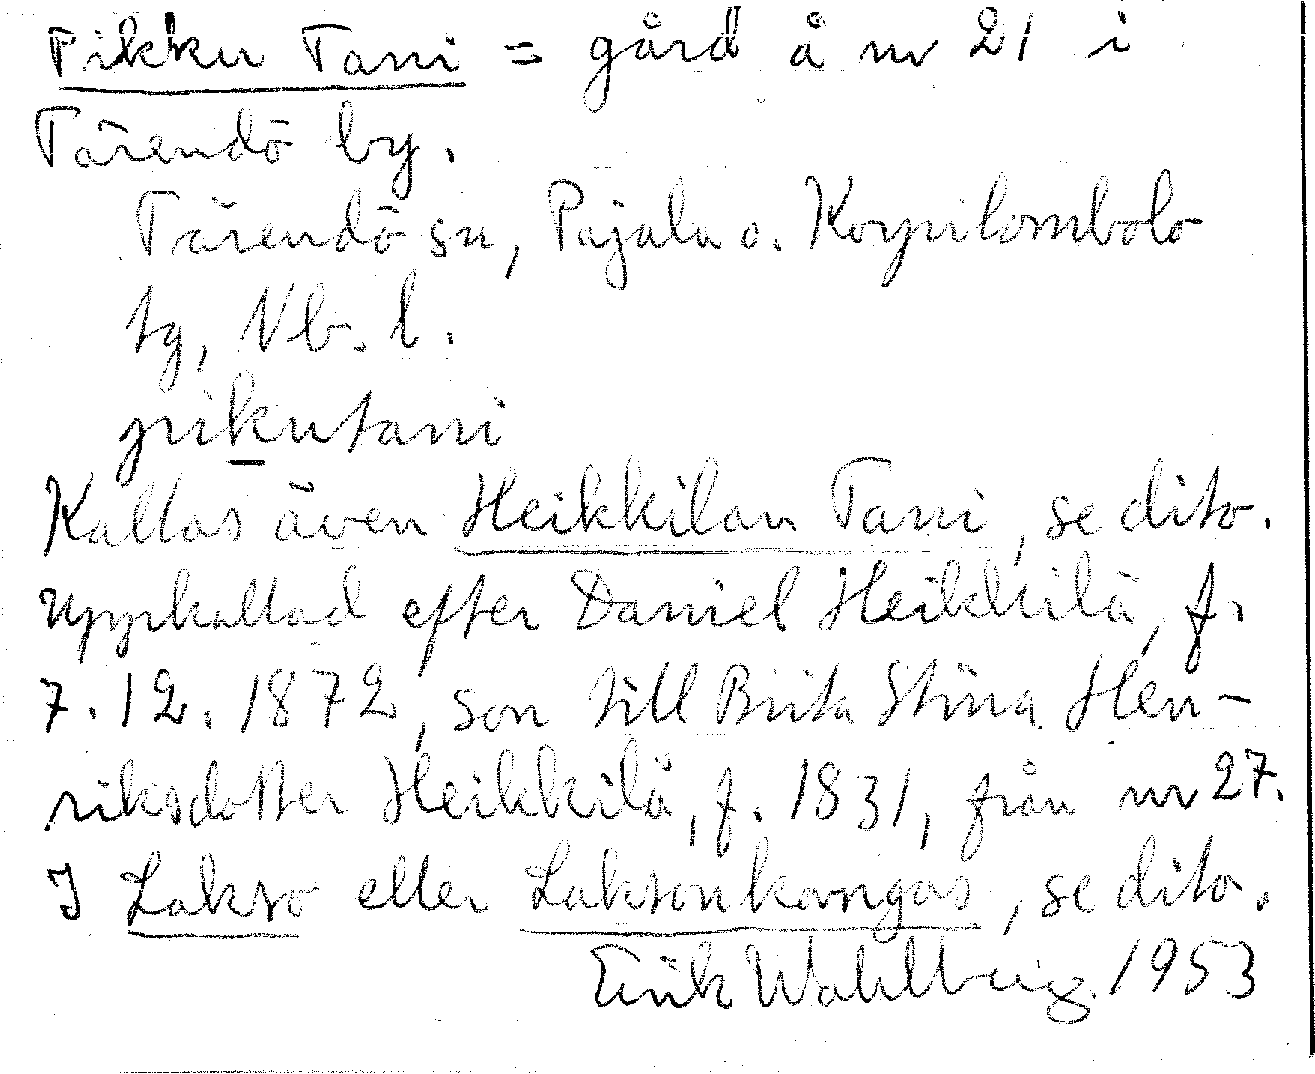 Pikku Tani = gård å nr 21 i
Tärendö by.
Tärendö sn, Pajala o. Korpilombolo
tg, Nb. l.
pikutani
Kallas även Heikkilän Tani, se dito.
Uppkallad efter Daniel Heikkilä, f.
7.12.1872, son till Brita Stina Hen-
riksdotter Heikkilä, f. 1831, från nr 27.
I Lakso eller Laksonkangas, se dito.
Erik Wahlberg. 1953